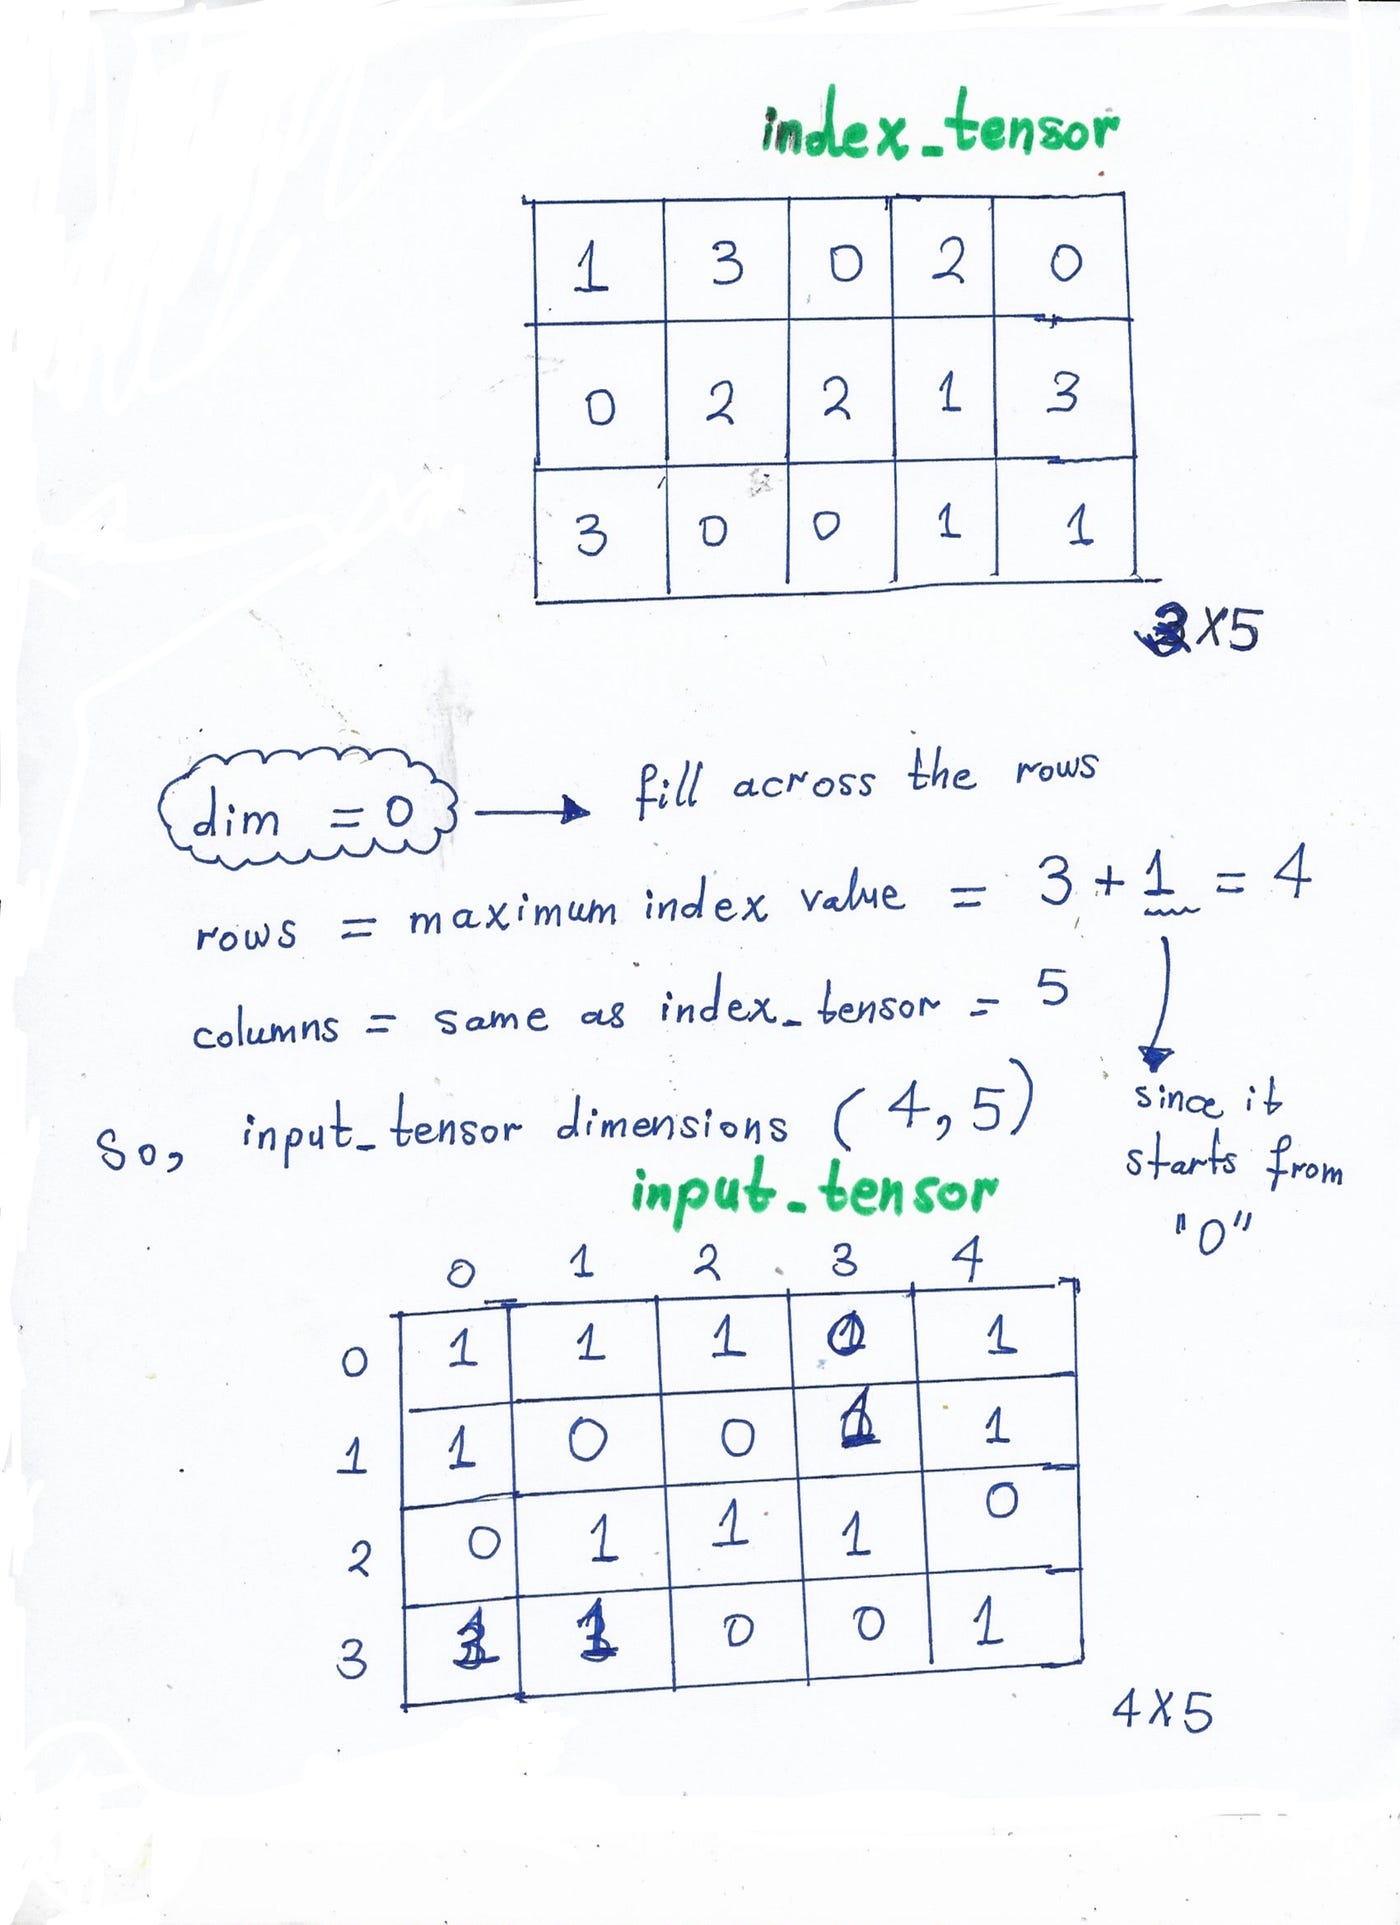 index_tensor
1 3 0 2 0
0 2 2 1 3
3 0 0 1 1
3X5
dim = 0 → fill across the rows
rows = maximum index value = 3 + 1 = 4
columns = same as index_tensor = 5
since it
starts from
"0"
So, input_tensor dimensions (4,5)
input_tensor
0 1 2 3 4
0 1 1 1 0 1
1 1 0 0 1 1
2 0 1 1 1 0
3 1 1 0 0 1
4X5